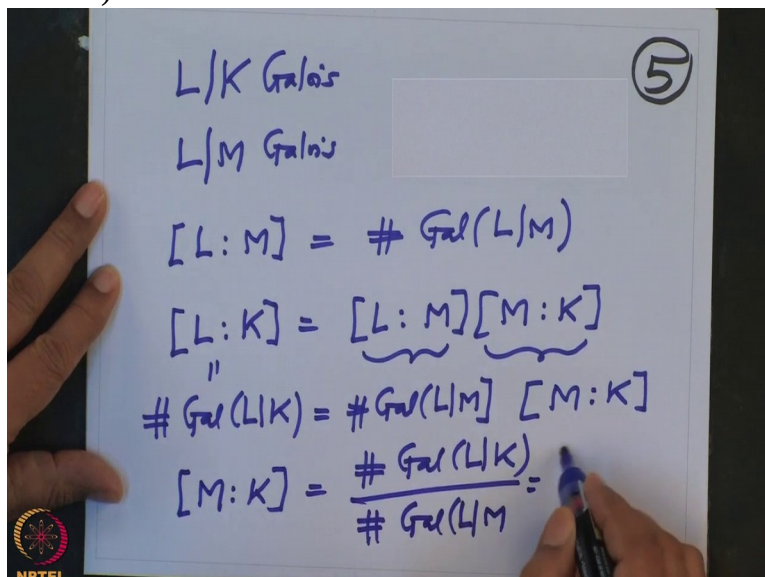 ⑤
L|K Galois
L|M Galois
[L : M] = # Gal(L|M)
[L : K] = [L : M][M : K]
"
# Gal(L|K) = # Gal(L|M] [M : K]
[M : K] = # Gal(L|K) / # Gal(L|M =
NPTEL